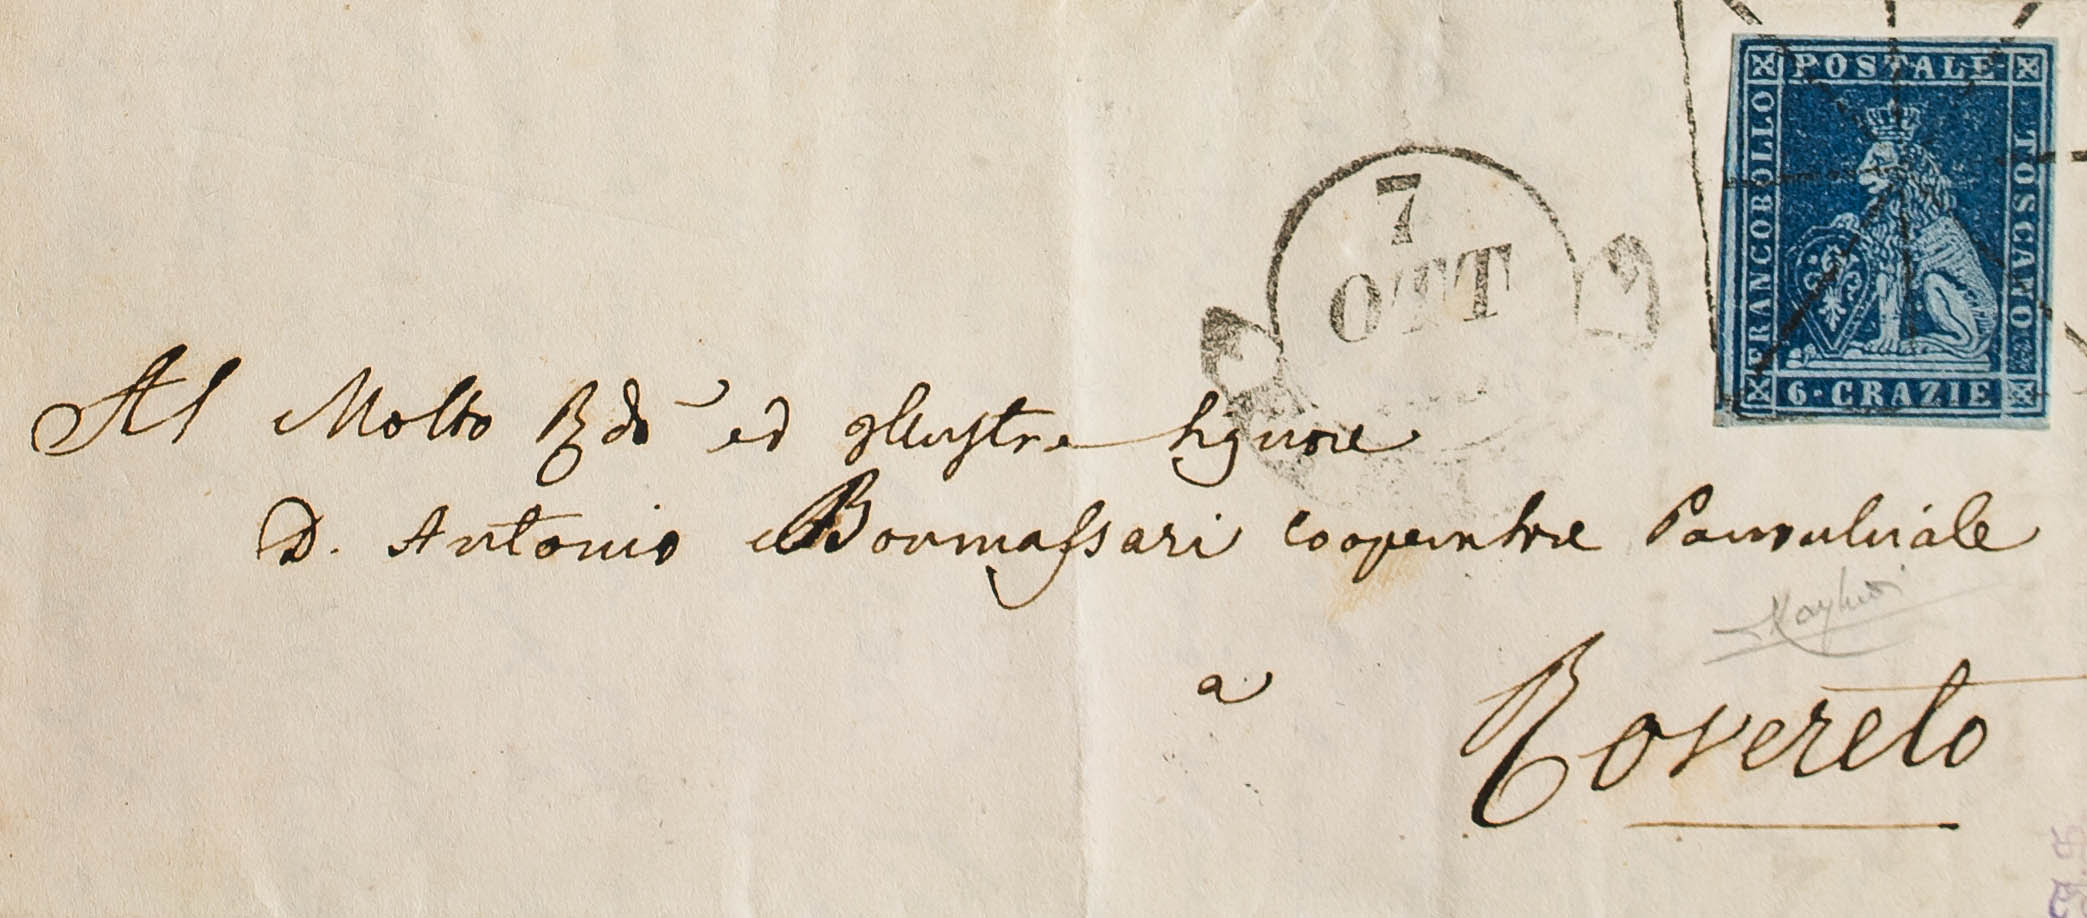 POSTALE
FRANCOBOLLO
TOSCANO
6·CRAZIE
7
OTT
Al Molto Rdo ed Illustre Signore
D. Antonio Bonmassari cooperatore Parrochiale
a
Rovereto